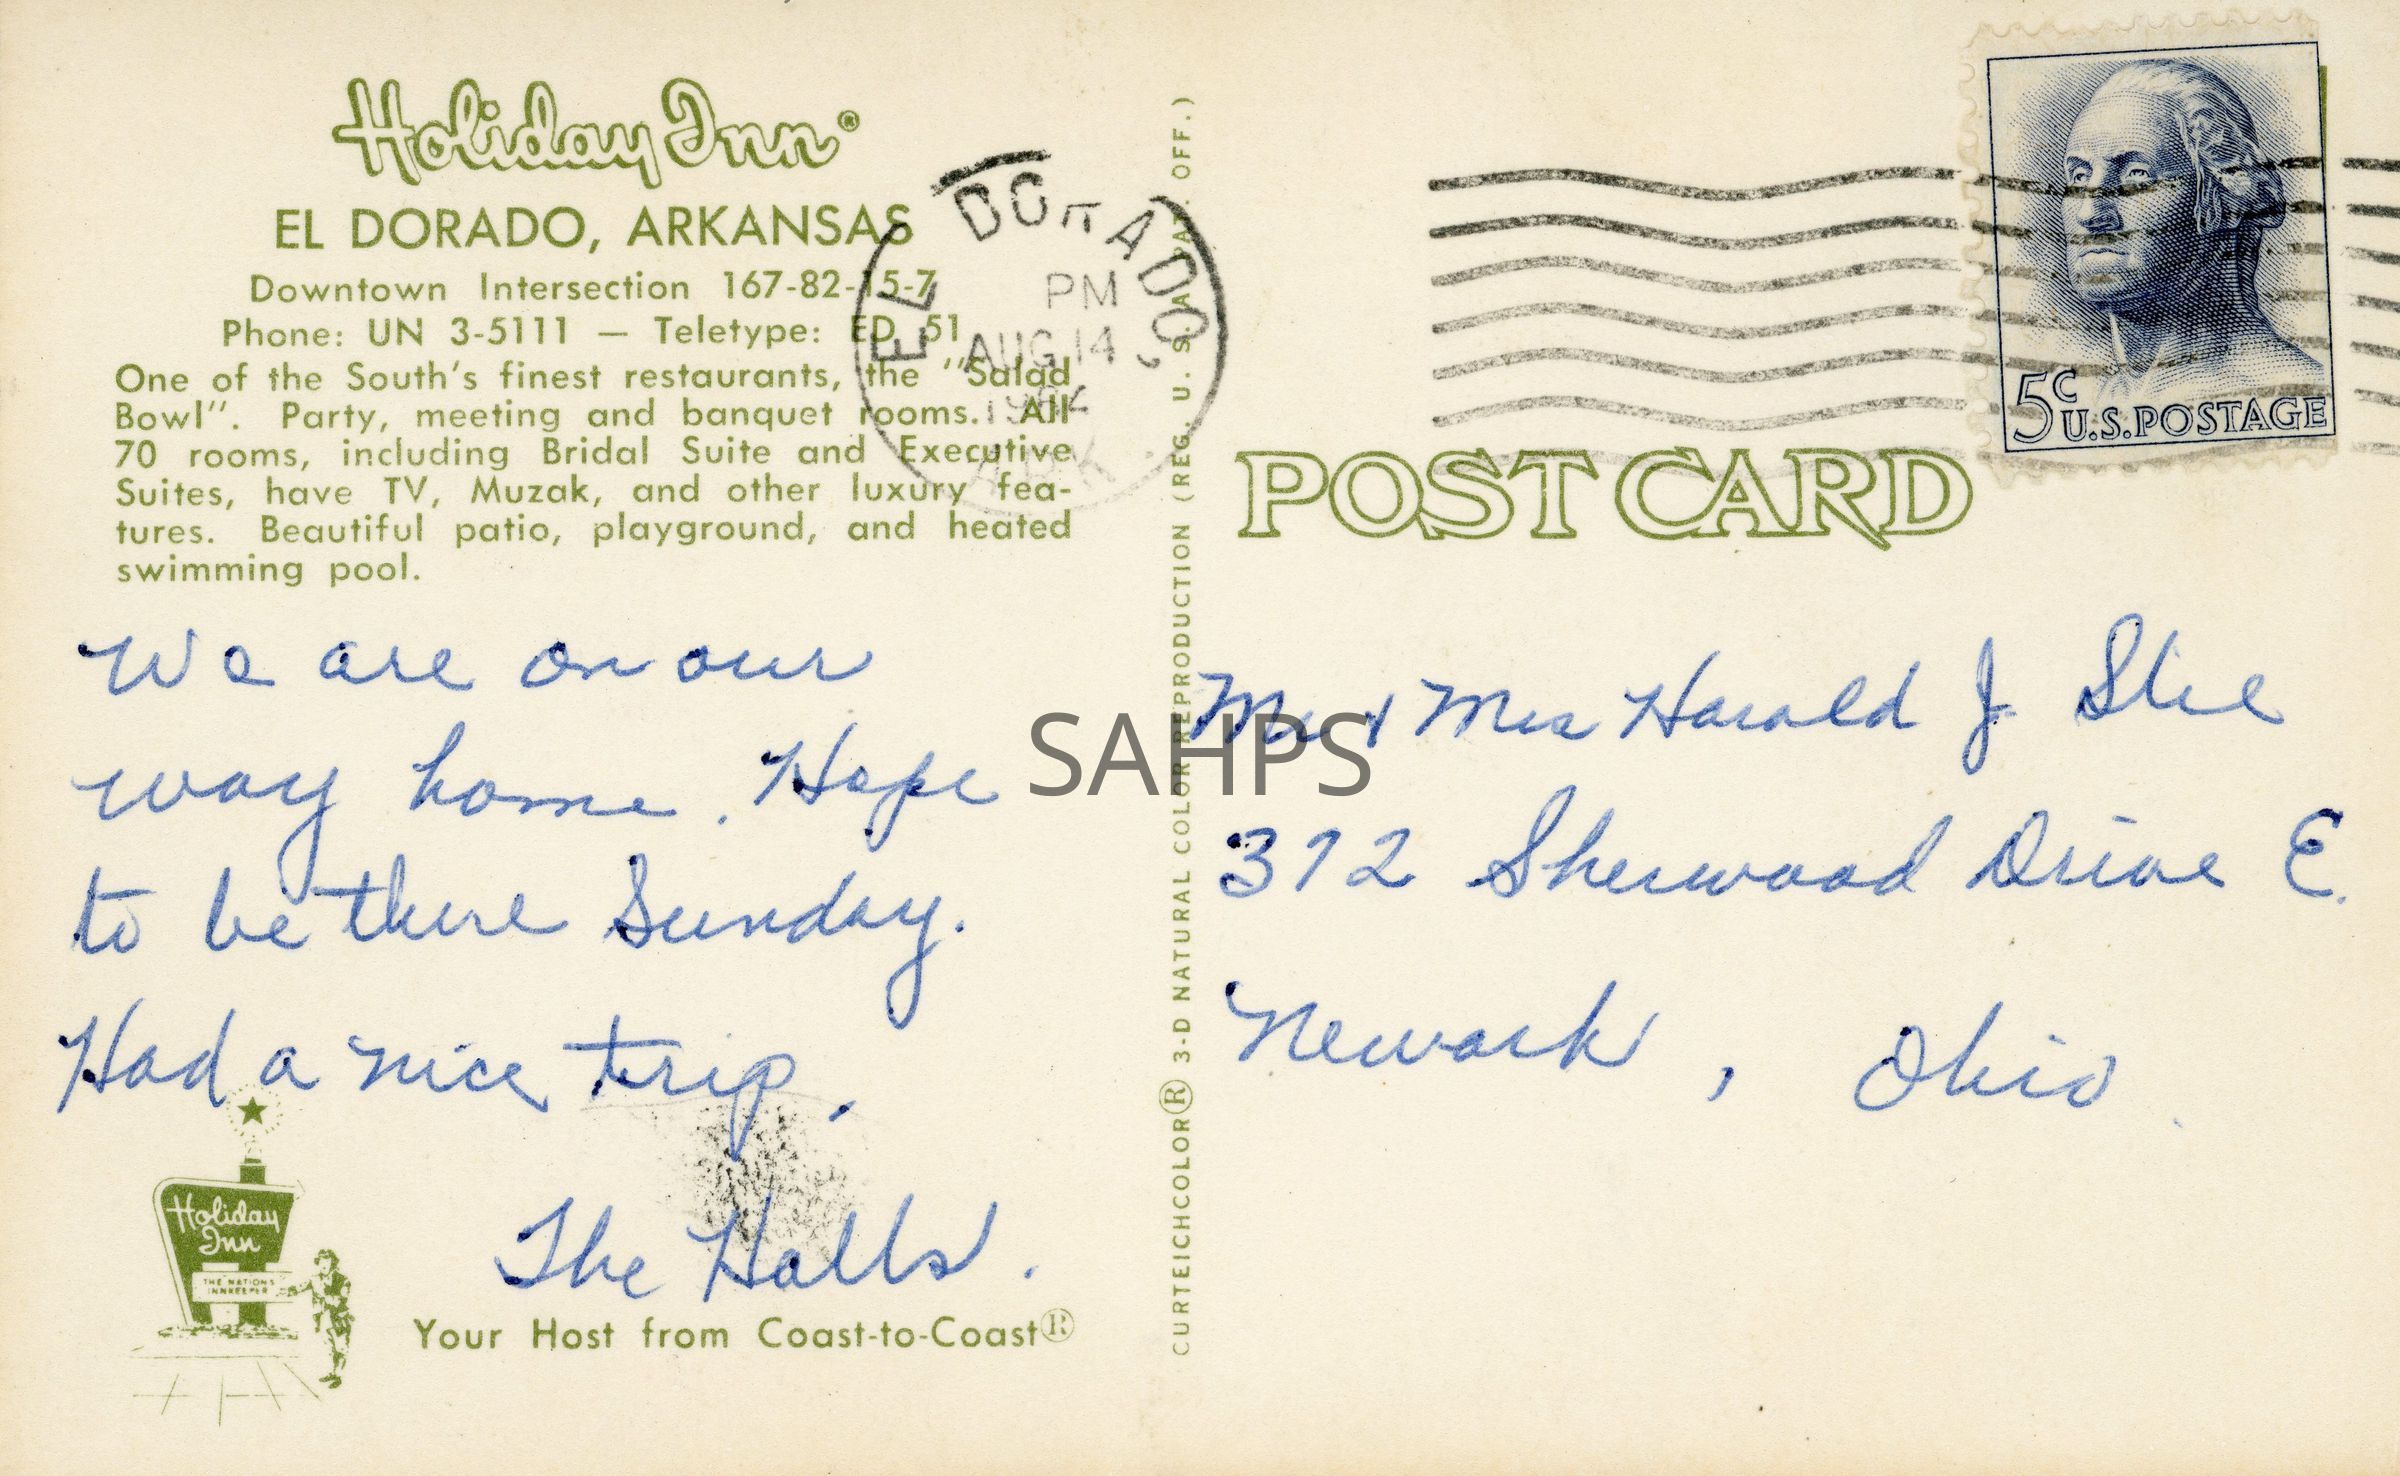 Holiday Inn®
EL DORADO, ARKANSAS
Downtown Intersection 167-82-15-7
Phone: UN 3-5111 — Teletype: ED 51
One of the South's finest restaurants, the "Salad
Bowl". Party, meeting and banquet rooms. All
70 rooms, including Bridal Suite and Executive
Suites, have TV, Muzak, and other luxury fea-
tures. Beautiful patio, playground, and heated
swimming pool.
We are on our
way home. Hope
to be there Sunday.
Had a nice trip.
The Halls.
Holiday
Inn
THE NATIONS
INNKEEPER
Your Host from Coast-to-Coast®
EL DORADO,
PM
AUG 14
ARK
CURTEICHCOLOR® 3-D NATURAL COLOR REPRODUCTION (REG. U. S. A. PAT. OFF.)
SAHPS
5c
U.S. POSTAGE
POST CARD
Mr & Mrs Harold J.
372 Sherwood Drive E.
Newark, Ohio